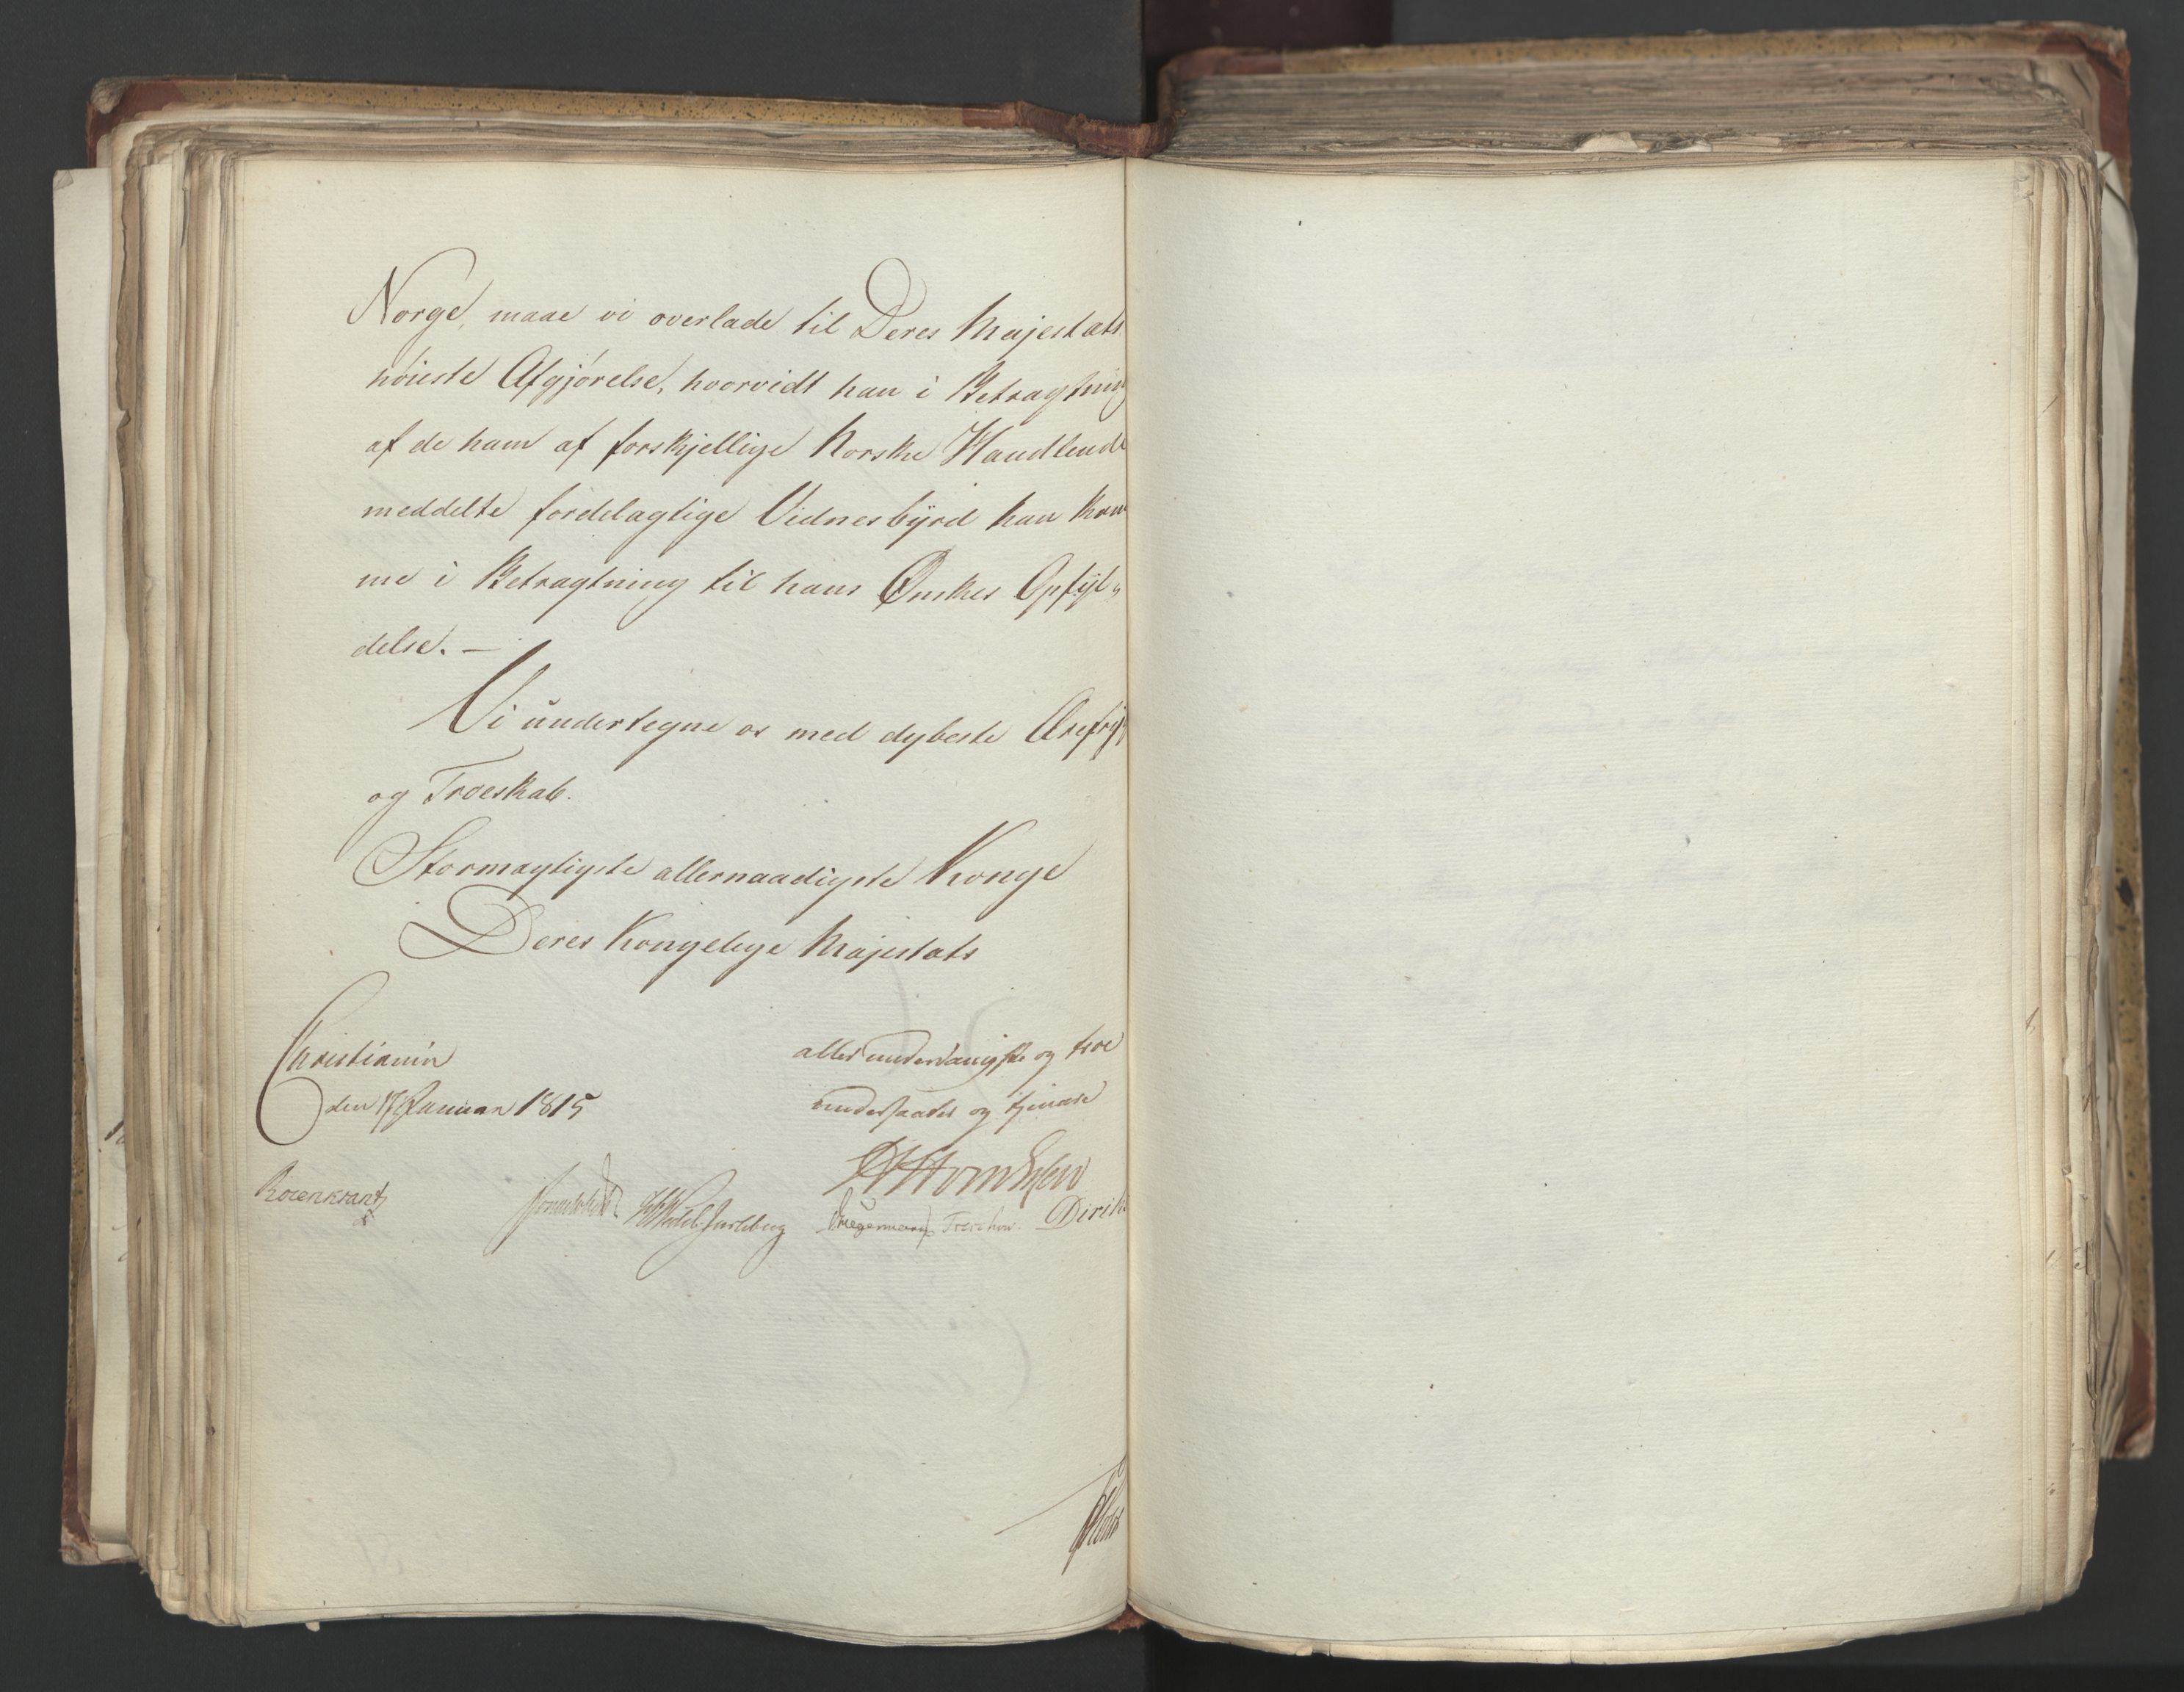 Norge, maae vi overlade til Deres Majestæts
høieste Afgjørelse, hvorvidt han i Betragtning
af de ham af forskjellige Norske Handlende
meddelte fordelagtige Vidnesbyrd kan kom
me i Betragtning til hans Ønskes Opfyl„
delse. —
Vi undertegne os med dybeste Ærefrygt
og Troeskab.
Stormægtigste allernaadigste Konge
Deres Kongelige Majestæts
Christiania
den 17 Januar 1815
allerunderdanigste og troe
undersaatter og tjenere
Rosenkrantz
Sommerhielm
Wedel-Jarlsberg
Hegermann
Treschow.
Diriks